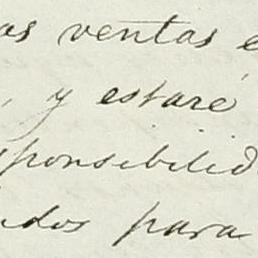 as ventas e
, y estaré
sponsibilid
ados para